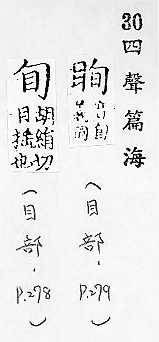 30四聲篇海
眴
(目部,P.279)
旬胡絹切目揺也
(目部,P.278)